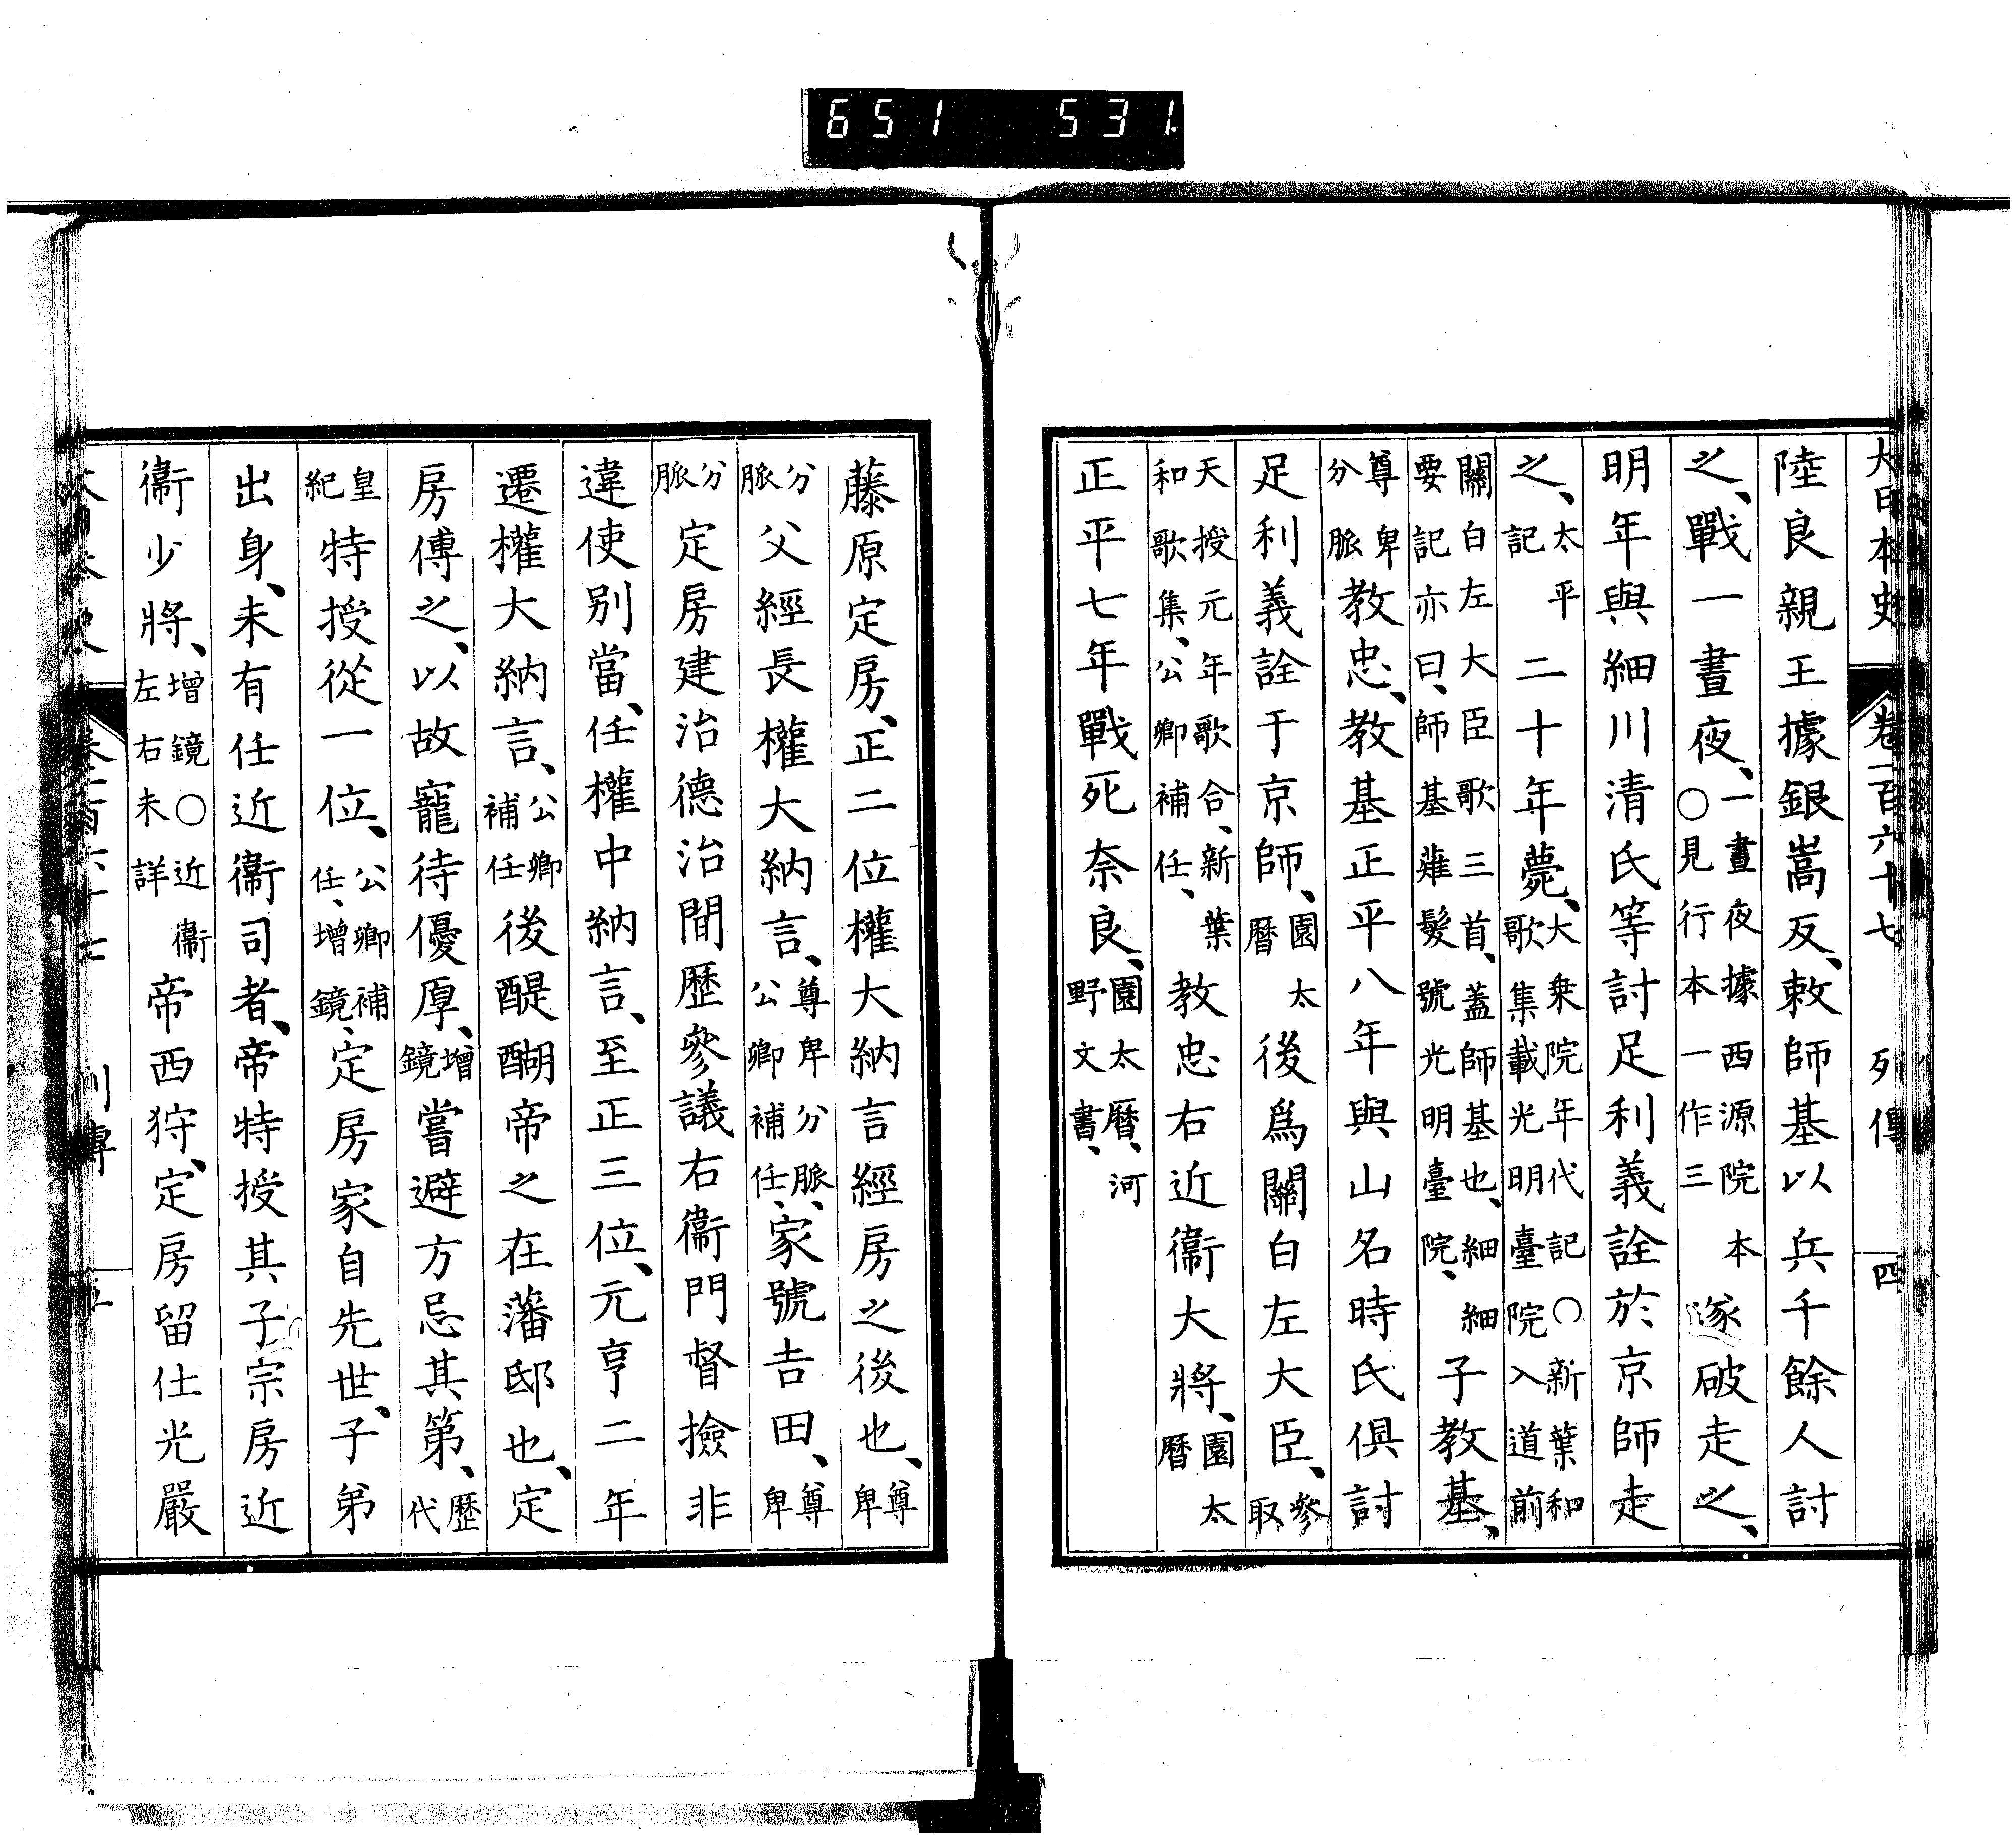 651 531.
大日本史 卷一百六十七 列傳 四
陸良親王據銀嵩反、敕師基以兵千餘人討
之、戰一晝夜、一晝夜據西源院本○見行本一作三遂破走之、
明年與細川清氏等討足利義詮於京師走
之、太平記二十年薨、大乘院年代記○新葉和歌集載光明臺院入道前
關白左大臣歌三首、蓋師基也、細細要記亦曰、師基薙髮號光明臺院、子教基、
尊卑分脈教忠、教基正平八年與山名時氏俱討
足利義詮于京師、園太曆後爲關白左大臣、參取
天授元年歌合、新葉和歌集、公卿補任、教忠右近衞大將、園太曆
正平七年戰死奈良、園太曆、河野文書、
藤原定房、正二位權大納言經房之後也、尊卑
分脈父經長權大納言、尊卑分脈、公卿補任、家號吉田、尊卑
分脈定房建治德治間歷參議右衞門督撿非
違使別當、任權中納言、至正三位、元亨二年
遷權大納言、公卿補任後醍醐帝之在藩邸也、定
房傅之、以故寵待優厚、增鏡嘗避方忌其第、歷代
皇紀特授從一位、公卿補任、增鏡、定房家自先世、子弟
出身、未有任近衞司者、帝特授其子宗房近
衞少將、增鏡○近衞左右未詳帝西狩、定房留仕光嚴